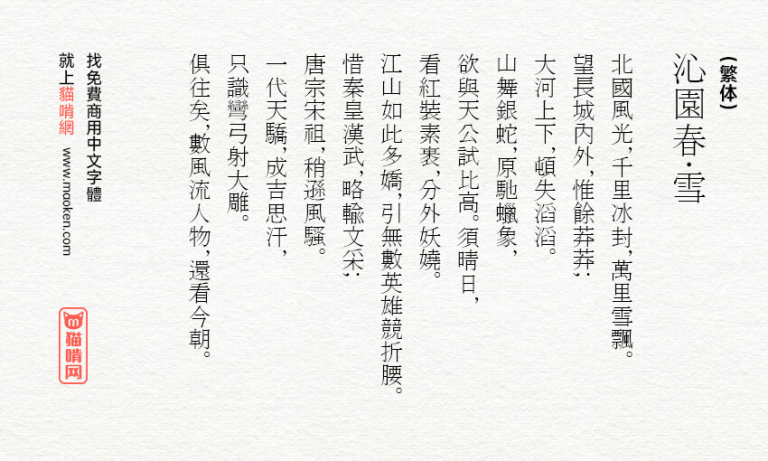 (繁体)
沁園春·雪
北國風光,千里冰封,萬里雪飄。
望長城內外,惟餘莽莽;
大河上下,頓失滔滔。
山舞銀蛇,原馳蠟象,
欲與天公試比高。須晴日,
看紅裝素裹,分外妖嬈。
江山如此多嬌,引無數英雄競折腰。
惜秦皇漢武,略輸文采;
唐宗宋祖,稍遜風騷。
一代天驕,成吉思汗,
只識彎弓射大雕。
俱往矣,數風流人物,還看今朝。
找免費商用中文字體
就上貓啃網 www.mooken.com
貓啃网